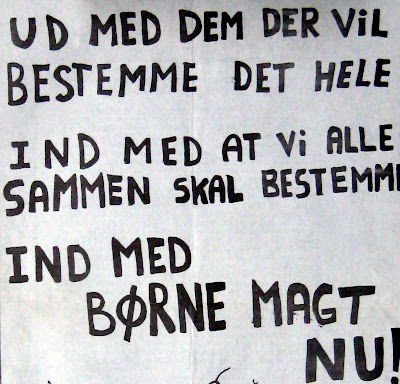 UD MED DEM DER ViL
BESTEMME DET HELE
IND MED AT Vi ALLE
SAMMEN SKAL BESTEMME
IND MED
BØRNE MAGT
NU!